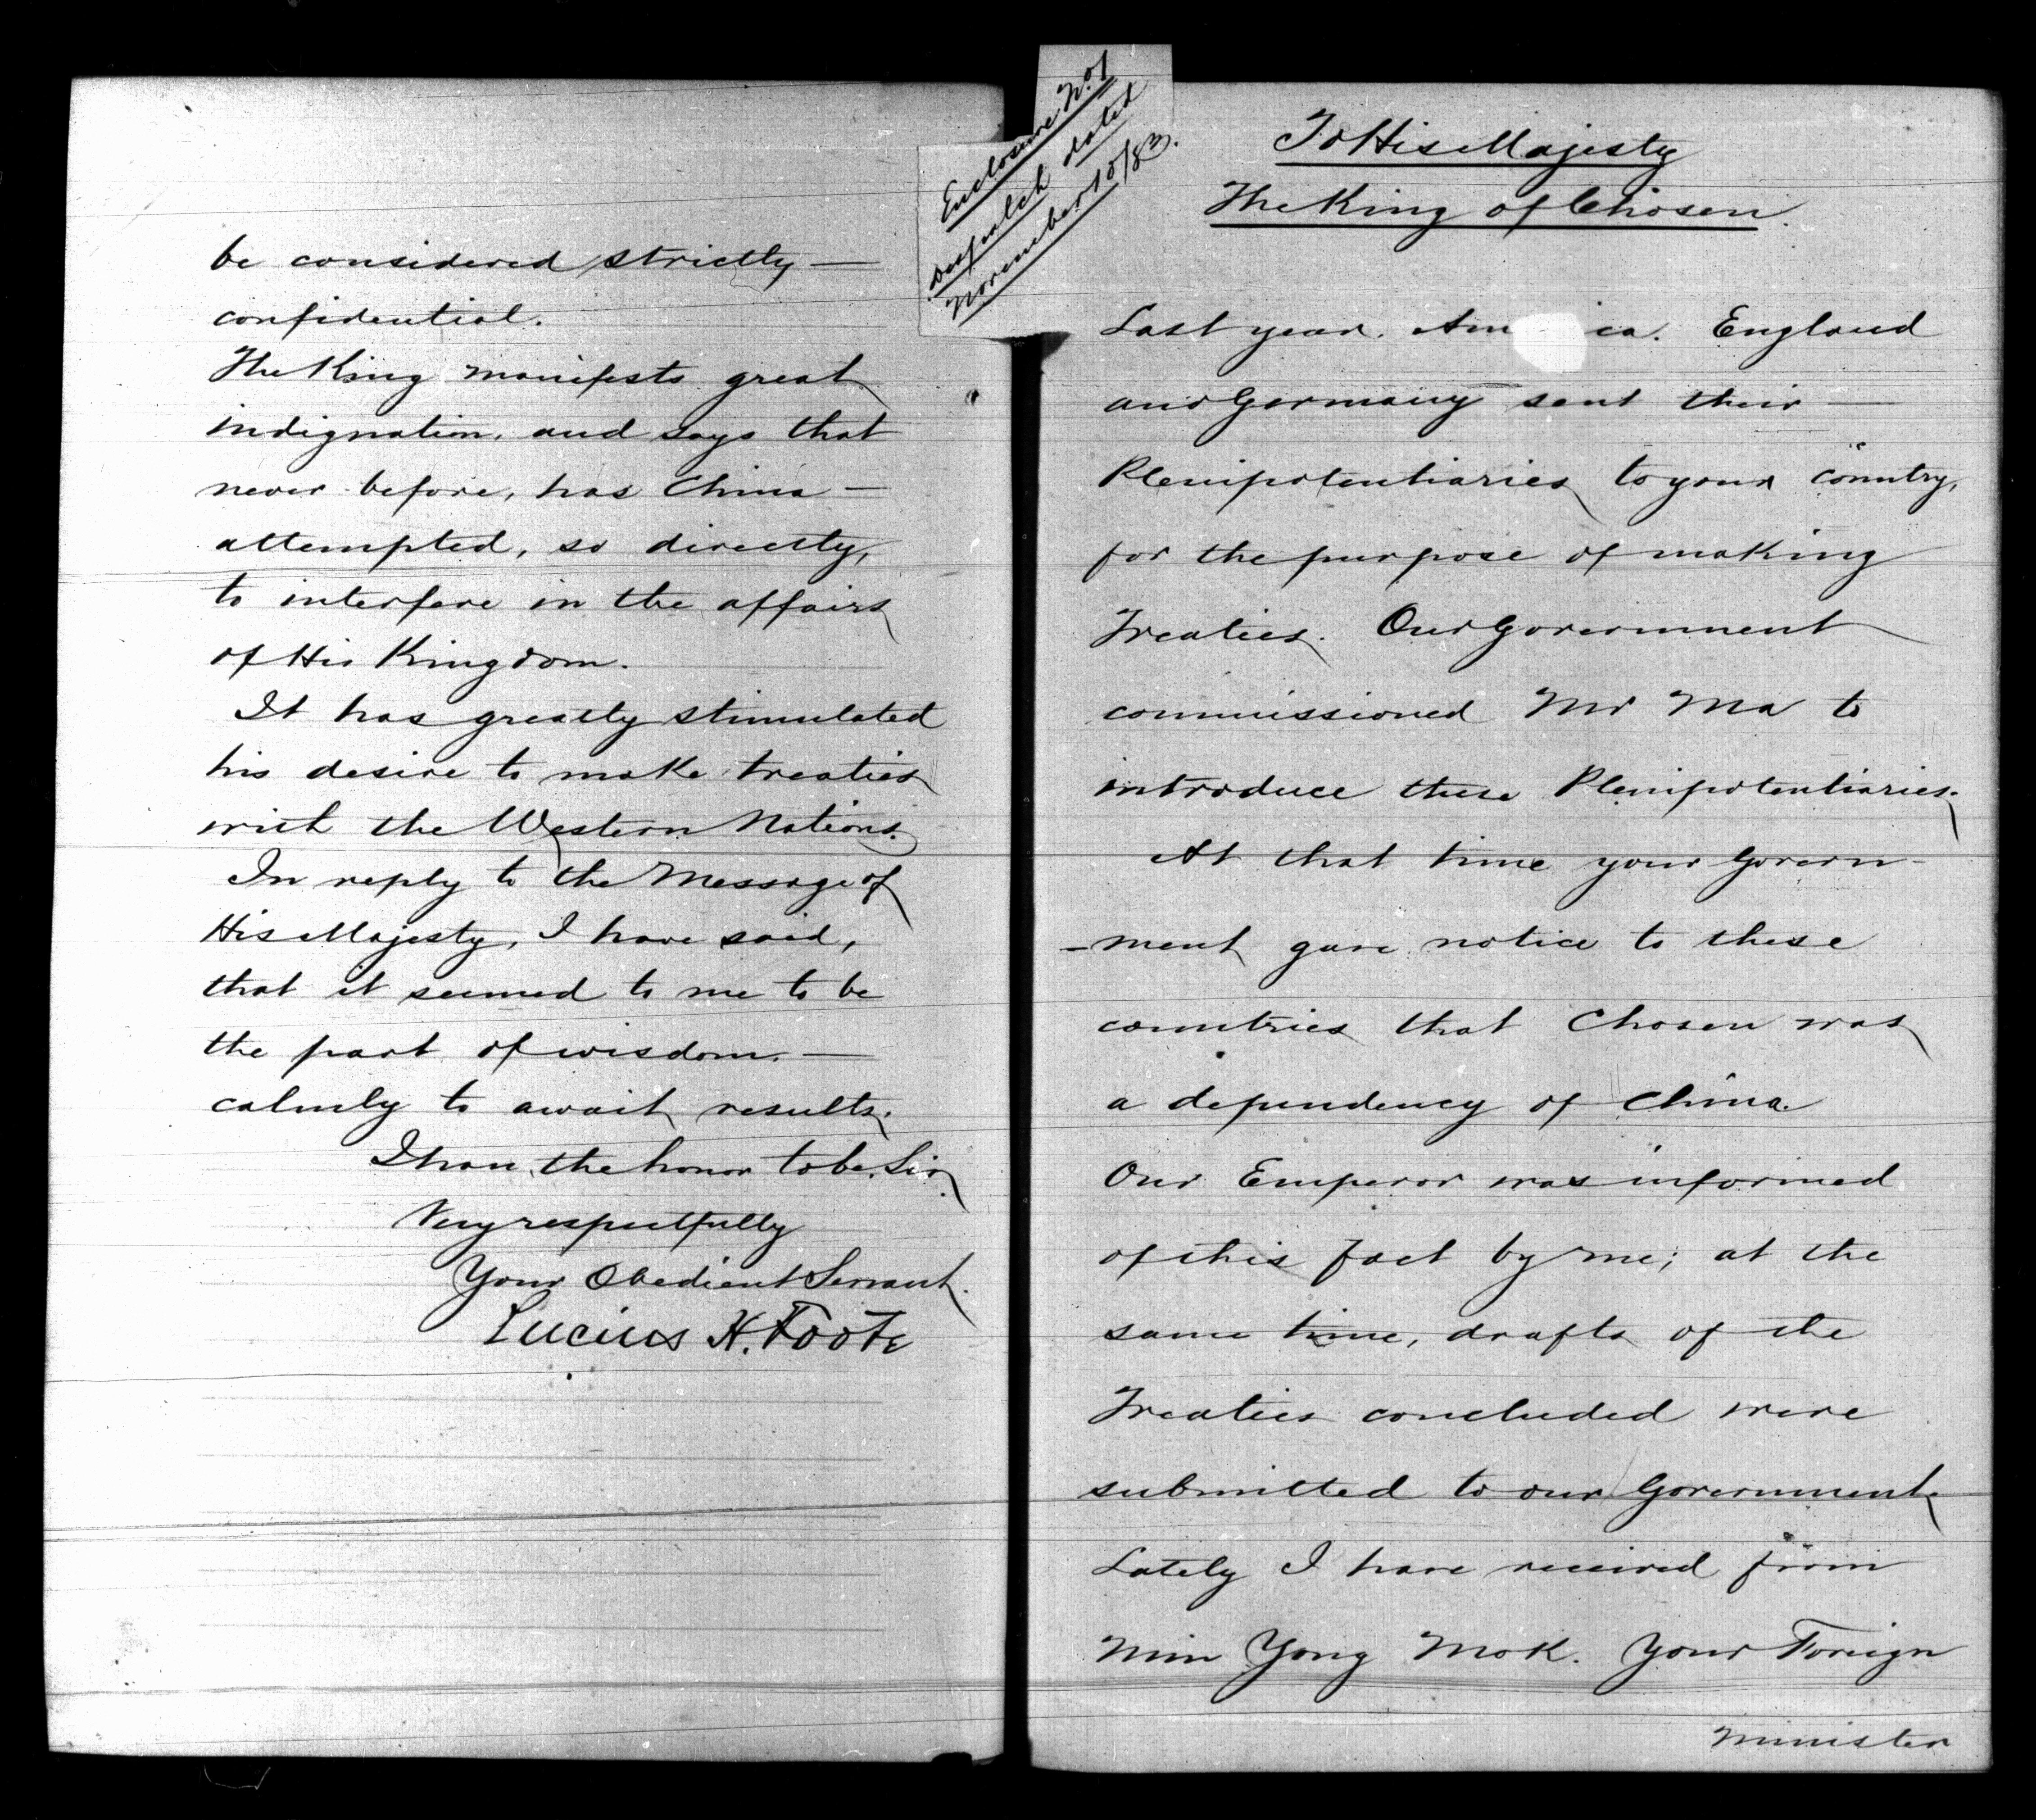 be considered strictly —
confidential.
The King manifests great
indignation, and says that
never before, has China —
attempted, so directly,
to interfere in the affairs
of His Kingdom.
It has greatly stimulated
his desire to make treaties
with the Western Nations.
In reply to the Message of
His Majesty, I have said,
that it seemed to me to be
the part of wisdom. —
calmly to await results.
I have the honor to be, Sir,
Very respectfully
Your Obedient Servant.
Lucius H. Foote
Enclosure No 1
Despatch dated
November 15/83.
To His Majesty
The King of Chosen
Last year. Am ca. England
and Germany sent their —
Plenipotentiaries to your country,
for the purpose of making
Treaties. Our Government
commissioned Mr Ma to
introduce these Plenipotentiaries.
At that time your Govern-
-ment gave notice to these
countries that Chosen was
a dependency of China.
Our Emperor was informed
of this fact by me; at the
same time, drafts of the
Treaties concluded were
submitted to our Government.
Lately I have received from
Min Yong Mok. Your Foreign
Minister